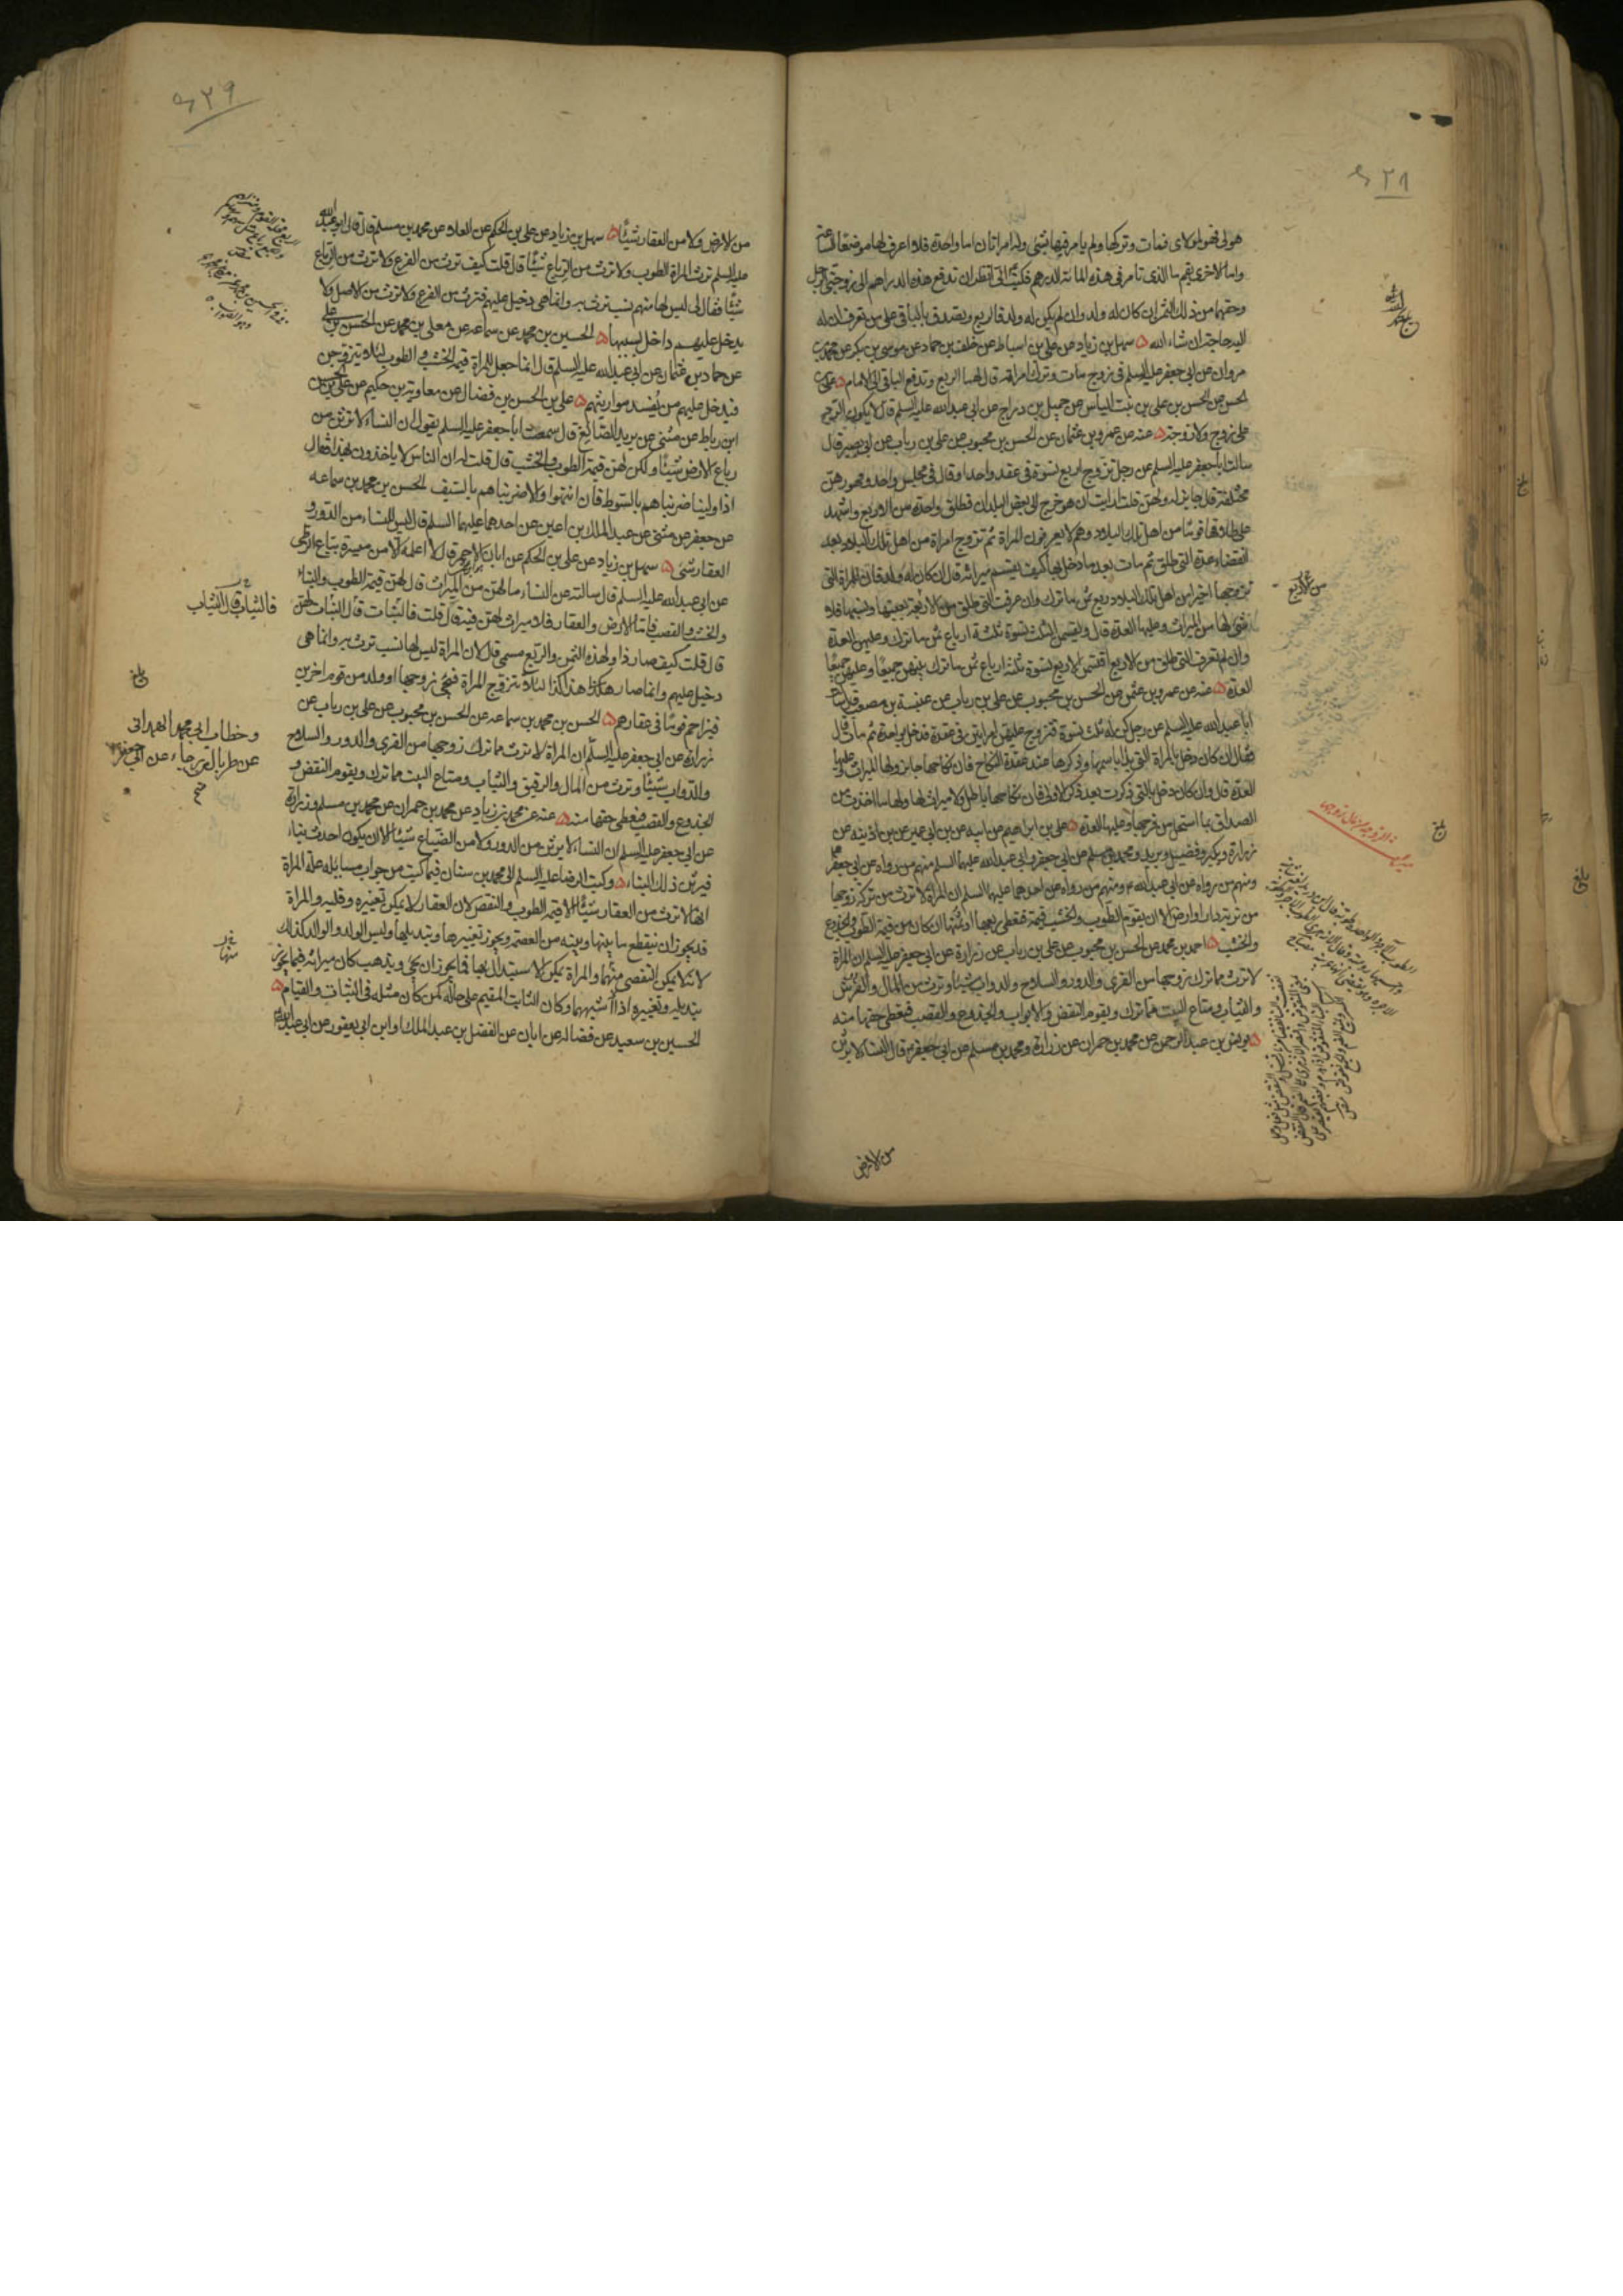 هو لى فهو لمولاى فمات وتركها ولم يامر فيها بشئ وله امراتان اما واحدة فلا اعرف لها موضعا الساعة
واما الاخرى بقم ما الذى تامر فى هذه المائة الدرهم فكتب الى انظر ان تدفع هذه الدراهم الى زوجتى الرجل
وحقهما من ذلك الثمن ان كان له ولد وان لم يكن له ولد فالربع وتصدق بالباقى على من تعرف ان له
اليه حاجة ان شاء الله سهل بن زياد عن على بن اسباط عن خلف بن حماد عن موسى بن بكر عن محمد بن
مروان عن ابى جعفر عليه السلم فى زوج مات وترك امراته قال لها الربع وتدفع الباقى الى الامام على بن
الحسن عن الحسن بن على بن بنت الياس عن جميل بن دراج عن ابى عبدالله عليه السلم قال لا يكون الرد
على زوج ولا زوجة عنه عن عمرو بن عثمان عن الحسن بن محبوب عن على بن رياب عن ابى بصير قال
سالت ابا جعفر عليه السلم عن رجل تزوج اربع نسوة فى عقد واحد او قال فى مجلس واحد ومهورهن
مختلفة قال جايز له ولهن قلت ارايت ان هو خرج الى بعض البلدان فطلق واحدة من الاربع واشهد
على طلاقها قوما من اهل تلك البلاد وهم لا يعرفون المراة ثم تزوج امراة من اهل تلك البلاد بعد
انقضاء عدة التى طلق ثم مات بعد ما دخل بها كيف يقسم ميراثه قال ان كان له ولد فان للمراة التى
تزوجها اخيرا من اهل تلك البلاد ربع ثمن ما ترك وان عرفت التى طلق من الاربعة بعينها ونسبها فلا
شئ لها من الميراث وعليها العدة قال ويقتسمن الثلث نسوة ثلثة ارباع ثمن ما ترك وعليهن العدة
وان لم تعرف التى طلق من الاربع اقتسمن الاربع نسوة ثلثة ارباع ثمن ما ترك بينهن جميعا وعليهن جميعا
العدة عنه عن عمرو بن عثمن عن الحسن بن محبوب عن على بن رياب عن عنبسة بن مصعب قال سالت
ابا عبدالله عليه السلم عن رجل كن له ثلث نسوة فتزوج عليهن امراتين فى عقدة فدخل بواحدة ثم مات قال
فقال ان كان دخل بالمراة التى بدا باسمها وذكرها عند عقدة النكاح فان نكاحها جايز ولها الميراث وعليها
العدة قال وان كان دخل بالتى ذكرت بعد ذكر الاولى فان نكاحها باطل ولا ميراث لها ولها ما اخذت من
الصداق بما استحل من فرجها وعليها العدة على بن ابراهيم عن ابيه عن بن ابى عمير عن بن اذينة عن
زرارة وبكير وفضيل وبريد ومحمد بن مسلم عن ابى جعفر وابى عبدالله عليهما السلم منهم من رواه عن ابى جعفر
ومنهم من رواه عن ابى عبدالله ع ومنهم من رواه عن احدهما عليهما السلم ان المراة لا ترث من تركة زوجها
من تربة دار او ارض الا ان يقوم الطوب والخشب قيمة فتعطى ربعها او ثمنها ان كان من قيمة الطوب والجذوع
والخشب احمد بن محمد عن الحسن بن محبوب عن على بن رياب عن زرارة عن ابى جعفر عليه السلم ان المراة
لا ترث مما ترك زوجها من القرى والدور والسلاح والدواب شيئا وترث من المال والفرش
والثياب ومتاع البيت مما ترك ويقوم النقض والابواب والجذوع والقصب فتعطى حقها منه
يونس بن عبدالرحمن عن محمد بن حمران عن زرارة ومحمد بن مسلم عن ابى جعفر ع قال النساء لا يرثن
من الارض
٤٢٩
من الارض ولا من العقار شيئا سهل بن زياد عن على بن الحكم عن العلاء عن محمد بن مسلم قال قال ابو عبدالله
عليه السلم ترث المراة الطوب ولا ترث من الرباع شيئا قال قلت كيف ترث من الفرع ولا ترث من الرباع
شيئا فقال لى ليس لها منهم نسب ترث به وانما هى دخيل عليهم فترث من الفرع ولا ترث من الاصل ولا
يدخل عليهم داخل بسببها الحسين بن محمد عن سماعه عن معلى بن محمد عن الحسن بن على
عن حماد بن عثمان عن ابى عبدالله عليه السلم قال انما جعل للمراة قيمة الخشب والطوب لئلا يتزوجن
فيدخل عليهم من يفسد مواريثهم على بن الحسن بن فضال عن معاوية بن حكيم عن على بن الحسن
ابن رباط عن مثنى عن يزيد الصائغ قال سمعت ابا جعفر عليه السلم يقول ان النساء لا يرثن من
رباع الارض شيئا ولكن لهن قيمة الطوب والخشب قال قلت له ان الناس لا ياخذون بهذا فقال
اذا ولينا ضربناهم بالسوط فان انتهوا والا ضربناهم بالسيف الحسن بن محمد بن سماعه
عن جعفر عن مثنى عن عبد الملك بن اعين عن احدهما عليهما السلم قال ليس للنساء من الدور و
العقار شئ سهل بن زياد عن على بن الحكم عن ابان الاحمر قال لا اعلمه الا عن ميسرة بياع الزطى
عن ابى عبدالله عليه السلم قال سالته عن النساء ما لهن من الميراث قال لهن قيمة الطوب والبناء
والخشب والقصب فاما الارض والعقار فلا ميراث لهن فيه قال قلت فالبنات قال البنات لهن
قال قلت كيف صار ذا ولهذه الثمن والربع مسمى قال لان المراة ليس لها نسب ترث به وانما هى
دخيل عليهم وانما صار هكذا هذا كذا لئلا تتزوج المراة فيجئ زوجها او ولد من قوم اخرين
فيزاحم قوما فى عقارهم الحسن بن محمد بن سماعه عن الحسن بن محبوب عن على بن رياب عن
زرارة عن ابى جعفر عليه السلم ان المراة لا ترث مما ترك زوجها من القرى والدور والسلاح
والدواب شيئا وترث من المال والرقيق والثياب ومتاع البيت مما ترك ويقوم النقض و
الجذوع والقصب فيعطى حقها منه عنه عن محمد بن زياد عن محمد بن حمران عن محمد بن مسلم وزرارة
عن ابى جعفر عليه السلم ان النساء لا يرثن من الدور ولا من الضياع شيئا الا ان يكون احدث بناء
فيرثن ذلك البناء وكتب الرضا عليه السلم الى محمد بن سنان فيما كتب من جواب مسايله علة المراة
انها لا ترث من العقار شيئا الا قيمة الطوب والنقض لان العقار لا يمكن تغييره وقلبه والمراة
قد يجوز ان ينقطع ما بينها وبينه من العصمة ويجوز تغييرها وتبديلها وليس الولد والوالد كذلك
لانه لا يمكن التفصى منهما والمراة يمكن الاستبدال بها فما يجوز ان يجئ ويذهب كان ميراثه فيما يجوز
تبديله وتغييره اذا اشبههما وكان الثابت المقيم على حاله كمن كان مثله فى الثبات والقيام
الحسين بن سعيد عن فضاله عن ابان عن الفضل بن عبد الملك او ابن ابى يعفور عن ابى عبدالله
فالثياب قال الثياب
وخطاب ابى محمد الهمدانى
عن طربال بن رجاء عن ابى جعفر